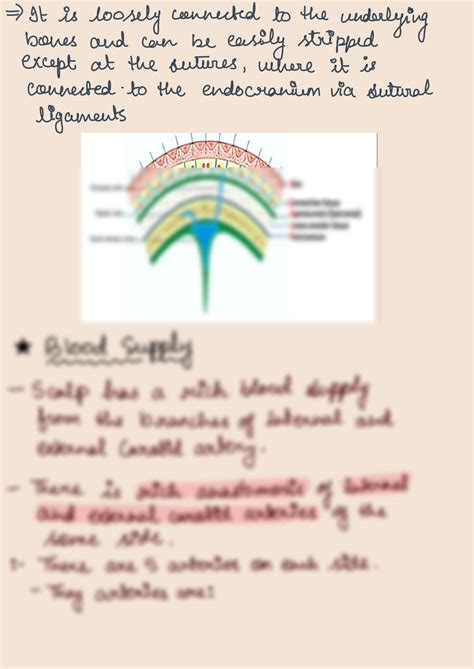 ⇒ It is loosely connected to the underlying
bones and can be easily stripped
except at the sutures, where it is
connected to the endocranium via sutural
ligaments
★ Blood Supply
- Scalp has a rich blood supply
from the branches of internal and
external carotid artery.
- There is rich anastomosis of internal
and external carotid arteries of the
same side.
1- There are 5 arteries on each side.
- They arteries are: